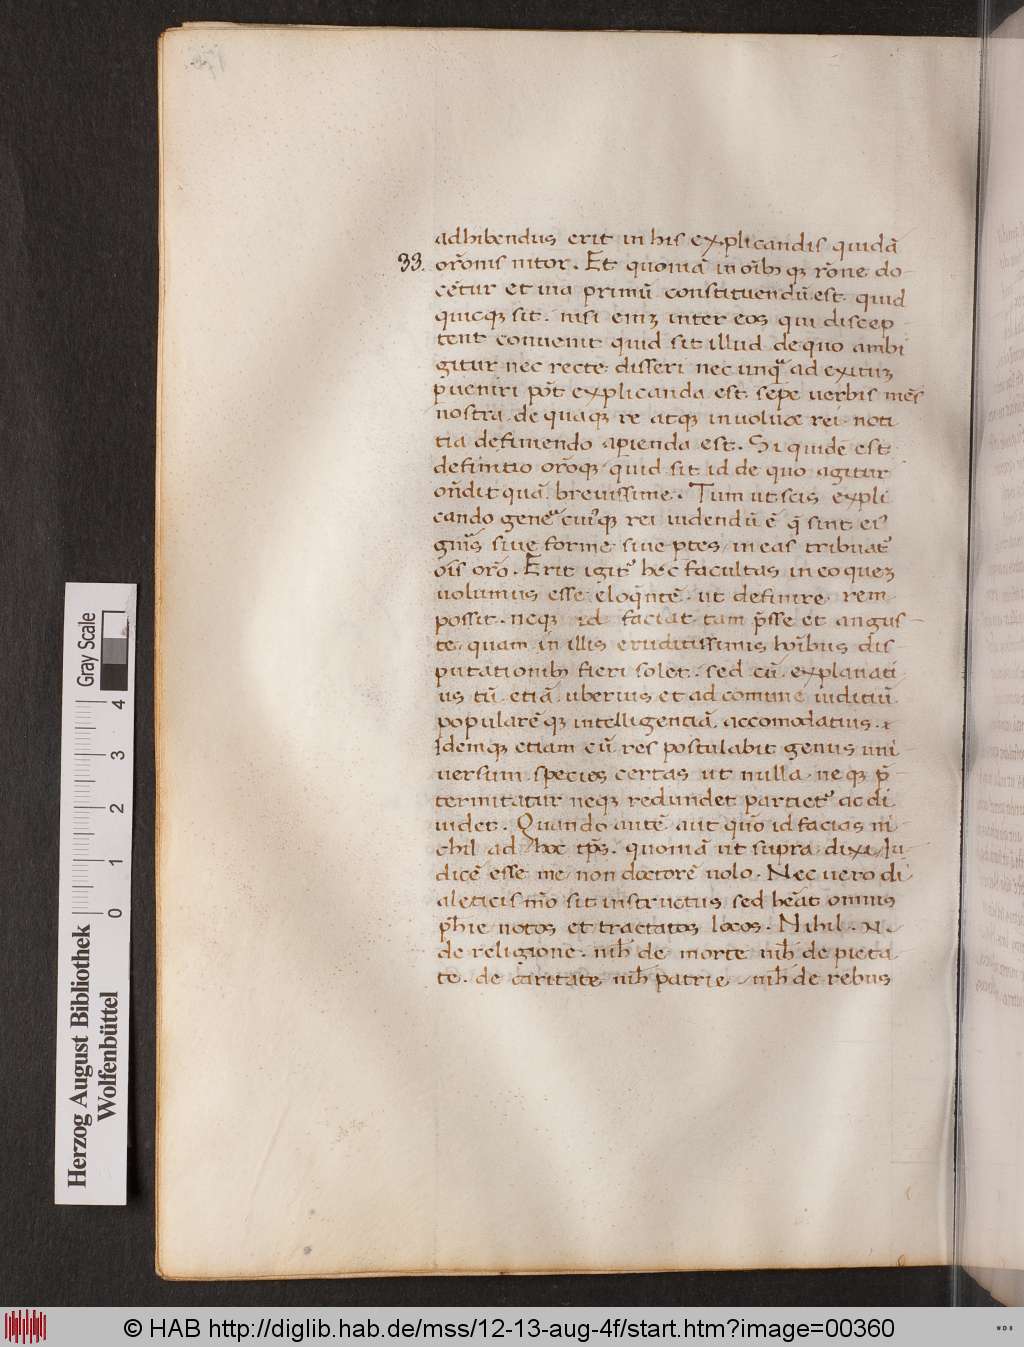 adhibendus erit in his explicandis quidā
33. orōnis nitor. Et quoniā in oīb; q; rōne do-
cētur et uia primū constituendū est quid
quicq; sit. nisi eniz inter eos qui discep-
tent conuenit quid sit illud de quo ambi
gitur nec recte disseri nec unqᵃ ad exituz
pueniri pōt explicanda est sepe uerbis mēs
nostra de quaq; re atq; inuolute rei noti
tia definiendo aperienda est. Si quide est
definitio orōq; quid sit id de quo agitur
oñdit quā breuissime. Tum ut scis expli
cando geneᵃ cuiꝰq; rei uidendū ē q̄ sint eiꝰ
gñis siue forme siue ptes in eas tribuatᵘʳ
oīs orō. Erit igitᵘʳ hec facultas in eo quez
uolumus esse eloq̄ntē. ut definire rem
possit. neq; id faciat tam p̄sse et angus-
te quam in illis eruditissimis hōibus dis-
putationib; fieri solet. sed cū explanati
us tū etiā uberius et ad comune iuditiū
popularēq; intelligentiā accomodatius.
Idemq; etiam cū res postulabit genus uni
uersum species certas ut nulla neq; p̄-
termitatur neq; redundet partietᵘʳ ac di
uidet. Quando autē aut quō id facias ni-
chil ad hoc tp̄s. quoniā ut supra dixi Iu-
dicē esse me non doctorē uolo. Nec uero di
aleticis mō sit instructus sed hēat omnis
phie notos et tractatos locos. Nihil .N.
de religione. nih̄ de morte nih̄ de pieta
te. de caritate nih̄ patrie nih̄ de rebus
Gray Scale
4
3
2
1
0
Herzog August Bibliothek
Wolfenbüttel
© HAB http://diglib.hab.de/mss/12-13-aug-4f/start.htm?image=00360